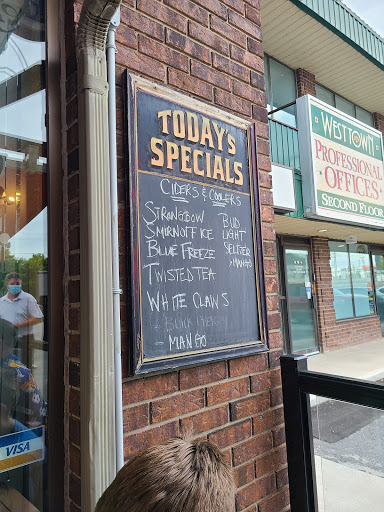 TODAY'S
SPECIALS
CIDERS & COOLERS
STRONGBOW
SMIRNOFF ICE
BLUE FREEZE
TWISTED TEA
WHITE CLAWS
MANGO
BUD
LIGHT
SELTZER
MANGO
WESTTOWN
PROFESSIONAL
OFFICES
SECOND FLOOR
VISA